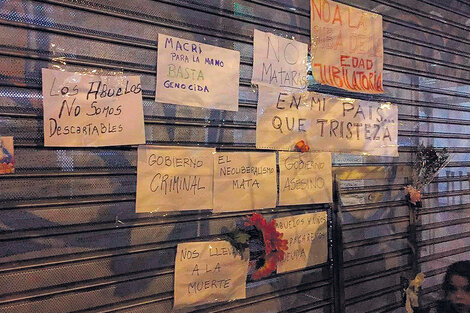 LOS ABUELOS
NO SOMOS
DESCARTABLES
MACRI
PARA LA MANO
BASTA
GENOCIDA
NO
MATARÁS
NO A LA
EDAD
JUBILATORIA
EN MI PAIS...
QUE TRISTEZA
GOBIERNO
CRIMINAL
EL
NEOLIBERALISMO
MATA
GOBIERNO
ASESINO
ABUELOS
NOS
A LA
MUERTE